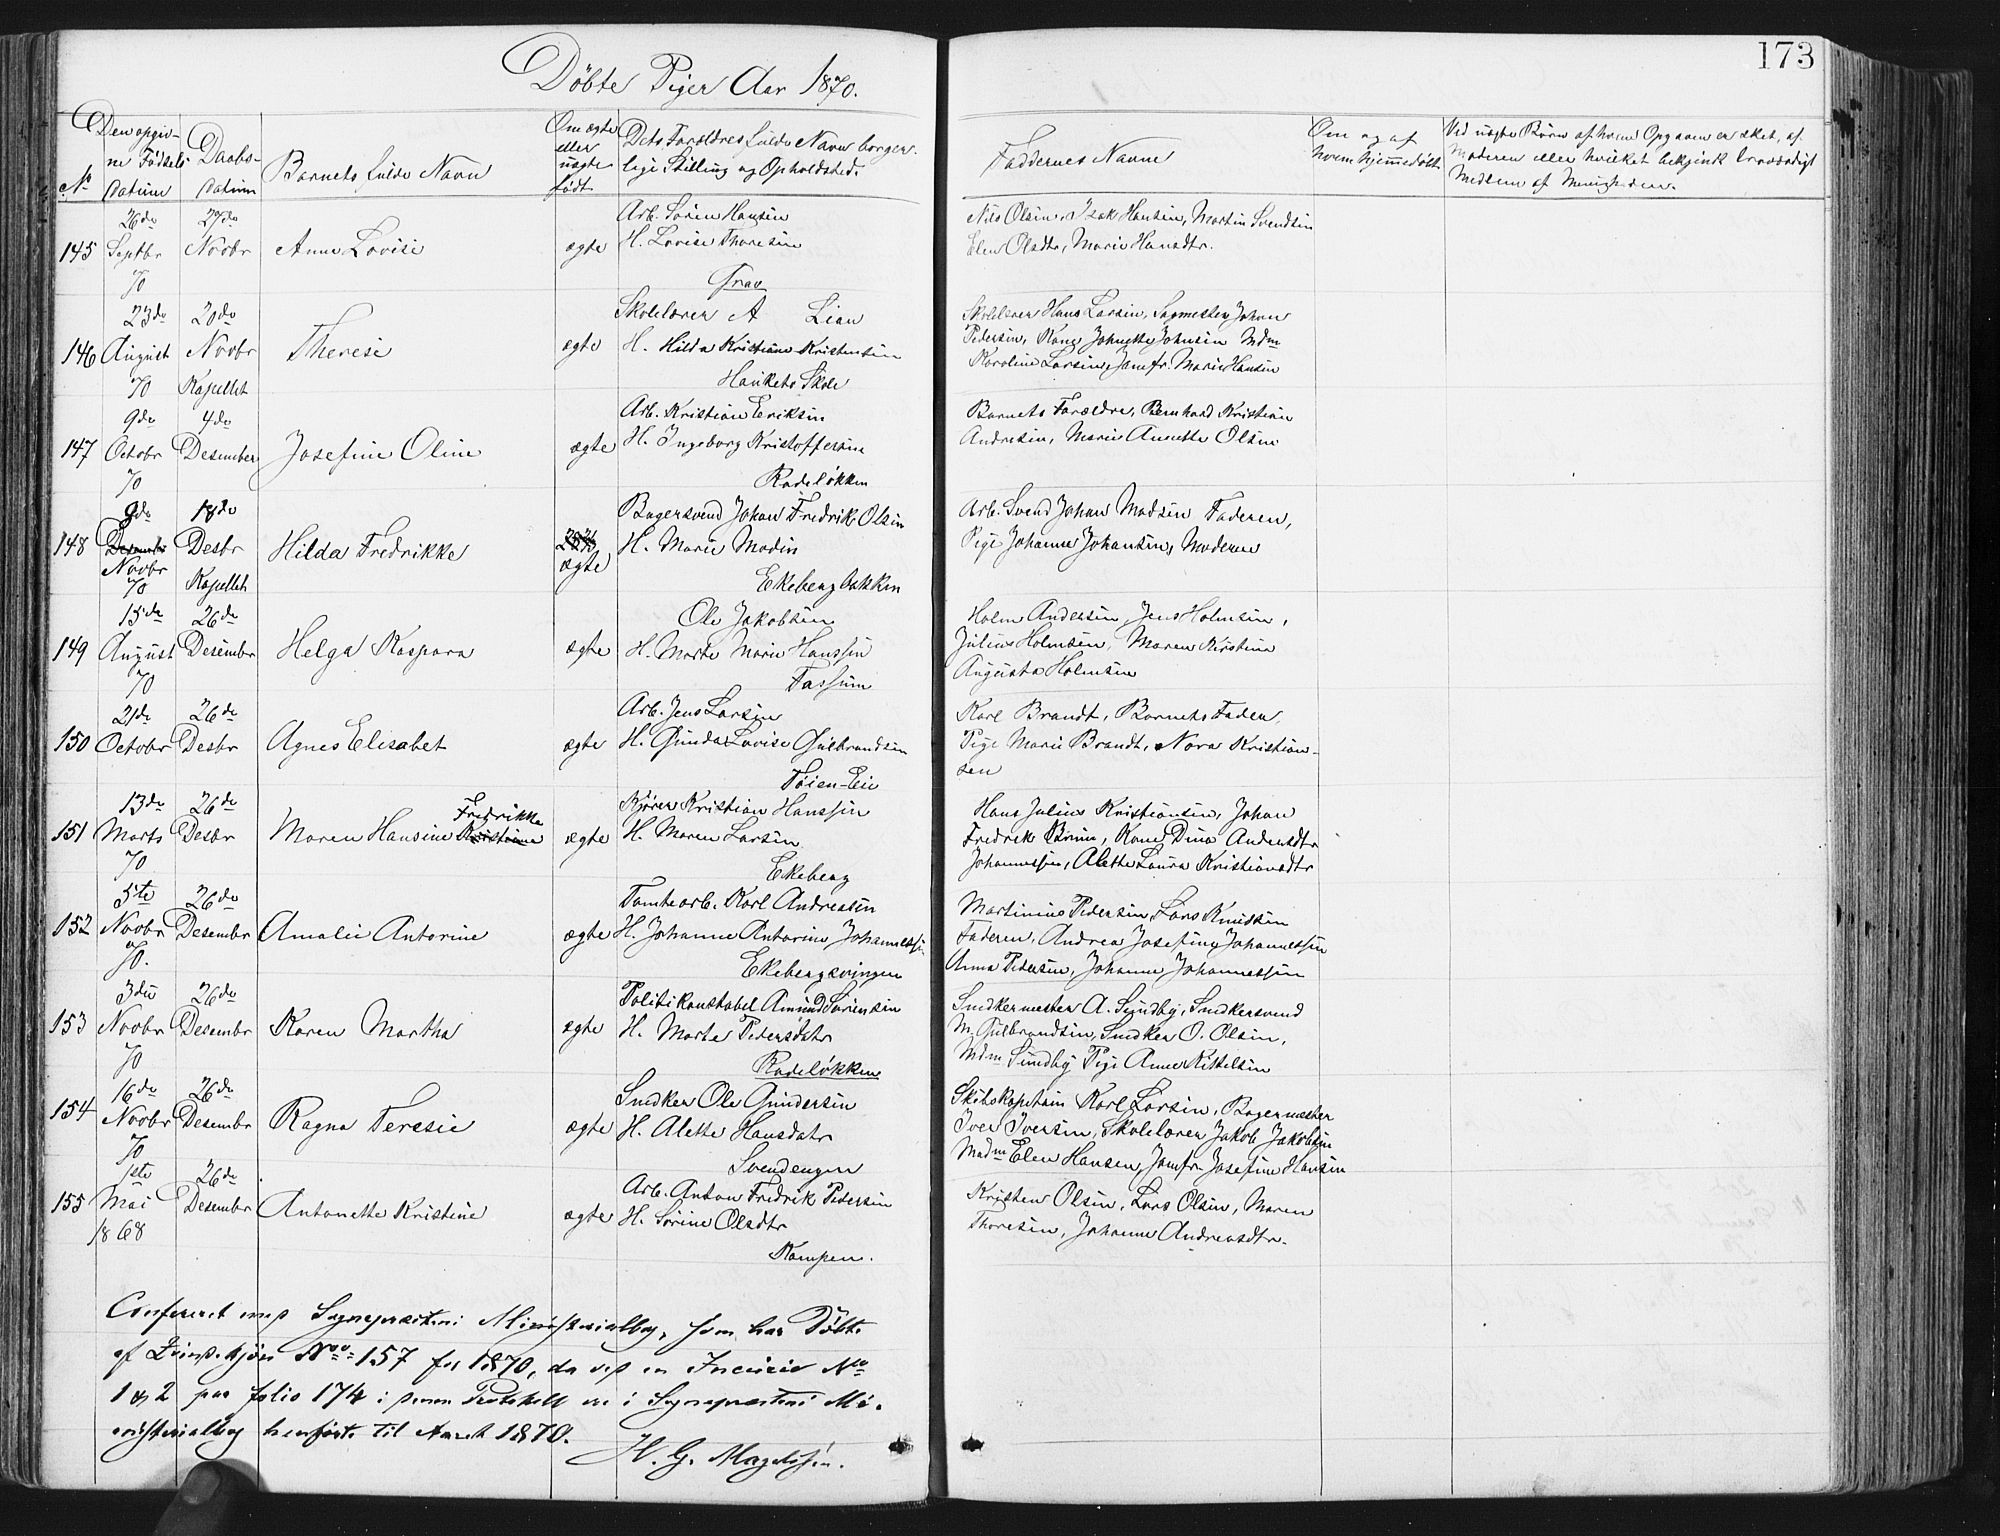 173
Döbte Piger Aar 1870.
No
Den opgivne Födsels Datum
Daabs-Datum
Barnets fulde Navn
Om ægte eller uægte födt
Dets Forældres fulde Navn borgerlige Stilling og Opholdsted.
Faddernes Navne
Om og af hvem hjemmedöbt
Ved uægte Börn af hvem Opgaven er sket, af Moderen eller hvilket bekjendt troværdigt Medlem af Menigheden.
145 26de Septbr 70 27de Novbr Anne Lovise ægte
Arb. Sören Hansen
H. Lovise Thoresen
Grav
Nils Olsen, Isak Hansen, Martin Svendsen
Elen Olsdtr, Marie Hansdtr.
146 23de August 70 20de Novbr Kapellet Therese ægte
Skolelærer A Lian
H. Hilda Kristiane Kristensen
Haukets Skole
Skolelærer Hans Larsen, Sagmester Johan
Pedersen, Kone Johnette Johnsen Mdm
Karoline Larsen, Jomfr. Marie Hansen
147 9de Octobr 70 4de Desember Josefine Oline ægte
Arb. Kristian Eriksen
H. Ingeborg Kristoffersen
Rodelökken
Barnets Forældre, Bernhard Kristian
Andresen, Marie Annette Olsen
148 9de Desember Novbr 70 18de Desbr Kapellet Hilda Fredrikke ægte
Bagersvend Johan Fredrik Olsen
H. Marie Madsen
Ekebergbakken
Arb. Svend Johan Madsen Faderen,
Pige Johanne Johansen, Moderen
149 15de August 70 26de Desember Helga Kaspara ægte
Ole Jakobsen
H. Marte Marie Hanssen
Tassum
Holm Andersen, Jens Holmsen,
Julius Holmsen, Maren Kirstina
Augusta Holmsen
150 21de Octobr 26de Desbr Agnes Elisabet ægte
Arb. Jens Larsen
H. Gunda Lovise Gulbrandsen
Töien-Eie
Karl Brandt, Barnets Fader,
Pige Marie Brandt, Nora Kristian-
sen
151 13de Marts 70 26de Desbr Maren Hansine Kristiane Fredrikke ægte
Kjörer Kristian Hanssen
H. Maren Larsen
Ekeberg
Hans Julius Kristiansen, Johan
Fredrik Bruun, Kone Dina Andersdtr
Johannessen, Alette Laura Kristiansdtr
152 5te Novbr 70. 26de Desember Amalie Antorine ægte
Tomtearb. Karl Andreasen
H. Johanne Antorine Johannessen
Ekebergsvingen
Martinius Pedersen, Lars Knudsen
Faderen, Andrea Josefine Johannessen
Anna Pedersen, Johanne Johannessen
153 3die Novbr 70 26de Desember Karen Martha ægte
Politikonstabel Amund Sörensen
H. Marte Pedersdatr
Rodelökken
Snedkermester A. Sundby, Snedkersvend
M. Gulbrandsen, Snedker O. Olsen,
Mdm Sundby Pige Anne Kittelsen
154 16de Novbr 70 26de Desember Ragna Teresie ægte
Snedker Ole Gundersen
H. Alette Hansdatr
Svendengen
Skibskaptein Karl Larsen, Bagermester
Iver Iversen, Skolelærer Jakob Jakobsen
Madm Elen Hansen, Jomfr. Josefine Hansen
155 1ste Mai 1868 26de Desember Antonette Kristine ægte
Arb. Anton Fredrik Pedersen
H. Sörine Olsdtr
Kampen.
Kristen Olsen, Lars Olsen, Maren
Thoresen, Johanne Andreasdtr.
Confereret med Sognepræstens Ministerialbog, som har Döbte
af Qvindekjön No 157 for 1870, da ved en Incurie No
1 & 2 paa folio 174 i denne Protokoll er i Sognepræstens Mi-
nisterialbog henförte til Aaret 1870.
H. G. Magelssen.